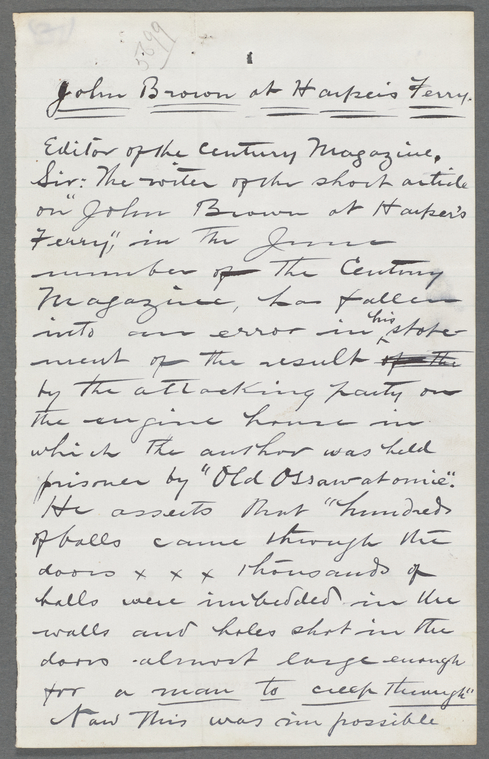 5899
John Brown at Harper's Ferry.
Editor of the Century Magazine,
Sir: The writer of the short article
on "John Brown at Harper's
Ferry," in the June
number of the Century
Magazine, has fallen
into an error in his state-
ment of the result of the
by the attacking party on
the engine house in
which the author was held
prisoner by "Old Ossawatomie".
He asserts that "hundreds
of balls came through the
doors x x x thousands of
balls were imbedded in the
walls and holes shot in the
doors almost large enough
for a man to creep through"
Now this was impossible